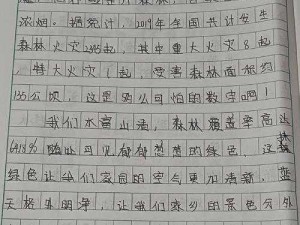 浓烟。据统计，2019年全国共计发生
森林火灾2345起，其中重大火灾8起，
特大火灾1起，受害森林面积约
135公顷，这是多么可怕的数字啊！
我们水富山清，森林覆盖率高达
随处可见郁郁葱葱的绿色，这
绿色让我们家园的空气更加清新，蓝
天格外明净，让我们家乡的景色分外